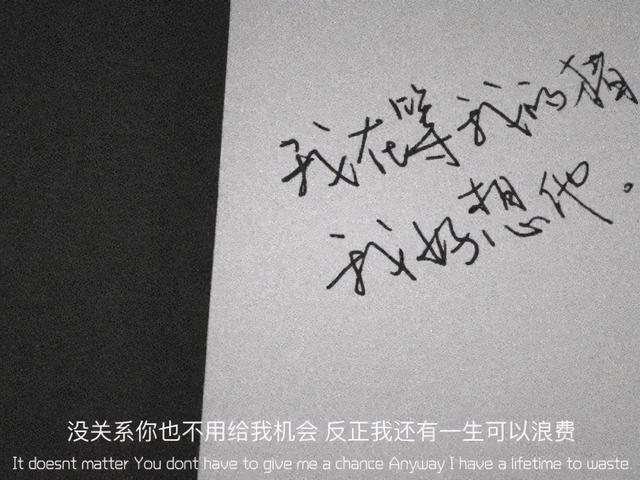 我在等我的猫
我好想他。
没关系你也不用给我机会 反正我还有一生可以浪费
It doesnt matter You dont have to give me a chance Anyway I have a lifetime to waste